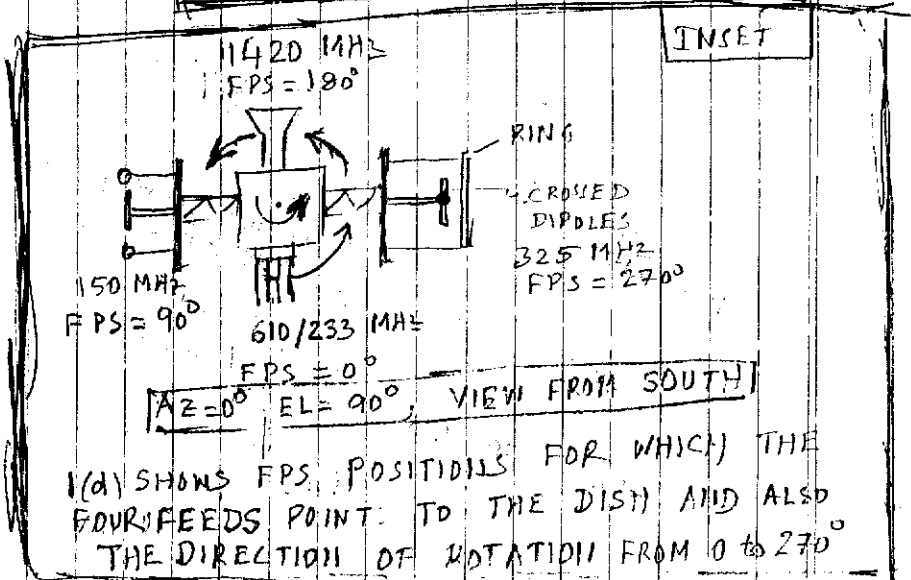 INSET
1420 MHz
FPS = 180°
RING
CROSSED
DIPOLES
325 MHz
FPS = 270°
150 MHz
FPS = 90°
610/233 MHz
FPS = 0°
AZ=0° EL= 90°, VIEW FROM SOUTH
1(d) SHOWS FPS POSITIONS FOR WHICH THE
FOUR FEEDS POINT TO THE DISH AND ALSO
THE DIRECTION OF ROTATION FROM 0 to 270°